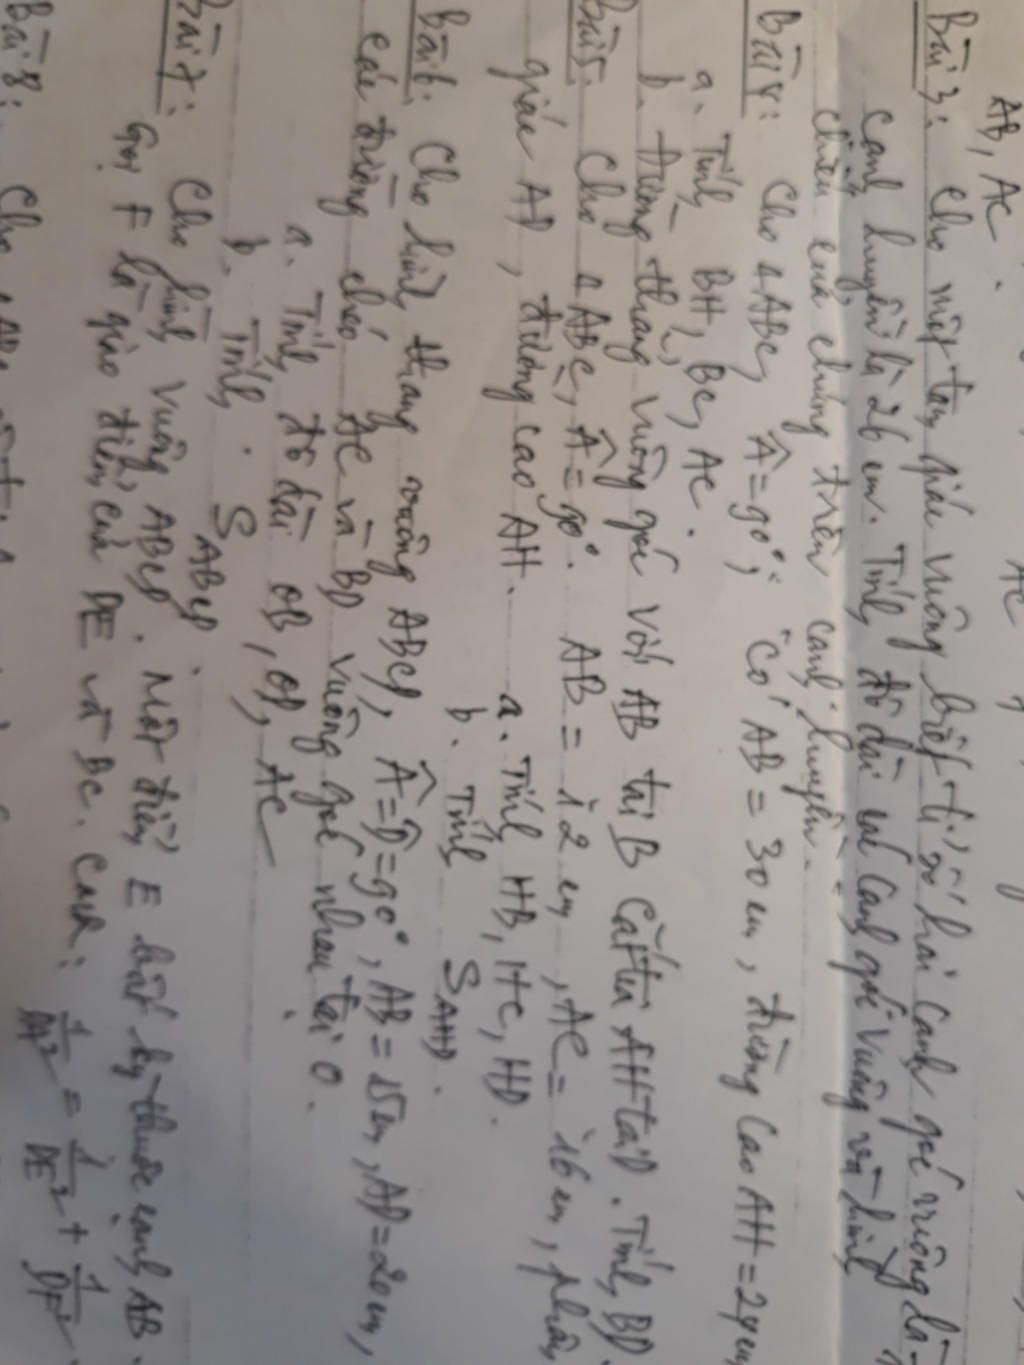 AB, AC.
AC
Bài 3: Cho một tam giác vuông biết tỉ số hai cạnh góc vuông là
cạnh huyền là 26 cm. Tính độ dài các cạnh góc vuông và hình
chiếu của chúng trên cạnh huyền.
Bài 4: Cho Δ ABC, Â = 90°; Có AB = 30 cm, đường cao AH = 24 cm
a. Tính BH, BC, AC.
b. Đường thẳng vuông góc với AB tại B cắt tia AH tại D. Tính BD
Bài 5: Cho Δ ABC, Â = 90°. AB = 12 cm, AC = 16 cm, phân
giác AD, đường cao AH. a. Tính HB, HC, HD.
b. Tính S AHD.
Bài 6: Cho hình thang vuông ABCD, Â = D̂ = 90°, AB = 15 cm, AD = 20 cm,
các đường chéo AC và BD vuông góc nhau tại O.
a. Tính độ dài OB, OD, AC
b. Tính S ABCD.
Bài 7: Cho hình vuông ABCD. Một điểm E bất kỳ thuộc cạnh AB.
Gọi F là giao điểm của DE và BC. CMR: 1/DA² = 1/DE² + 1/DF²
Bài 8: Cho